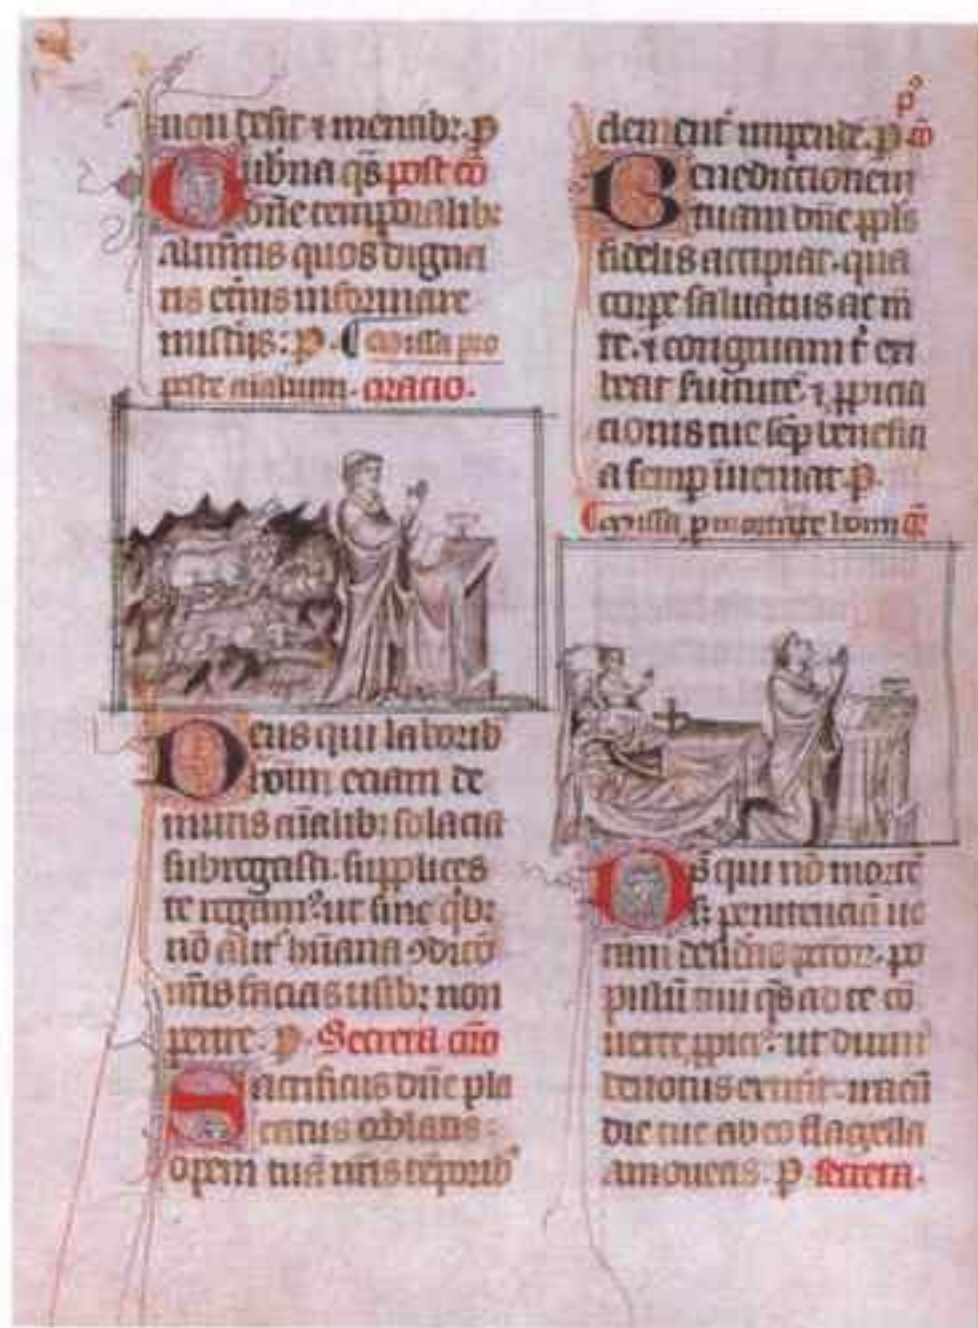 non desit ⁊ mentib: p
Gubna qs post cō
dne temporalib:
alimtis quos digna
ris etnis informare
mistiis: p. Missa pro
peste aialium. oratio.
Deus qui laborib
hoim eciam de
mutis aialib: solacia
subrogasti. supplices
te rogam': ut sine qb:
nō alit' huana ꝯdicō
nris facias usib: non
perire. p. Secreta
Sacrificiis dne pla
catus oblatis:
opem tuā nris tēporib'
clement' impende. p cō
Benedictionem
tuam dne ppls
fidelis accipiat. qua
corpe saluatus ac m
te. ⁊ congruam t'
beat seruitutē. ⁊ ppicia
cionis tue sēp benefici
a semp inueniat. p.
Missa p mortalitate homī
Ds qui nō mortē
s; penitenciā
desideras pctor. po
pulū tuū qs ad te cō
uerte ppici': ut dum
deuotus extit'it. iracū
die tue ab eo flagella
amoueas. p. secreta.